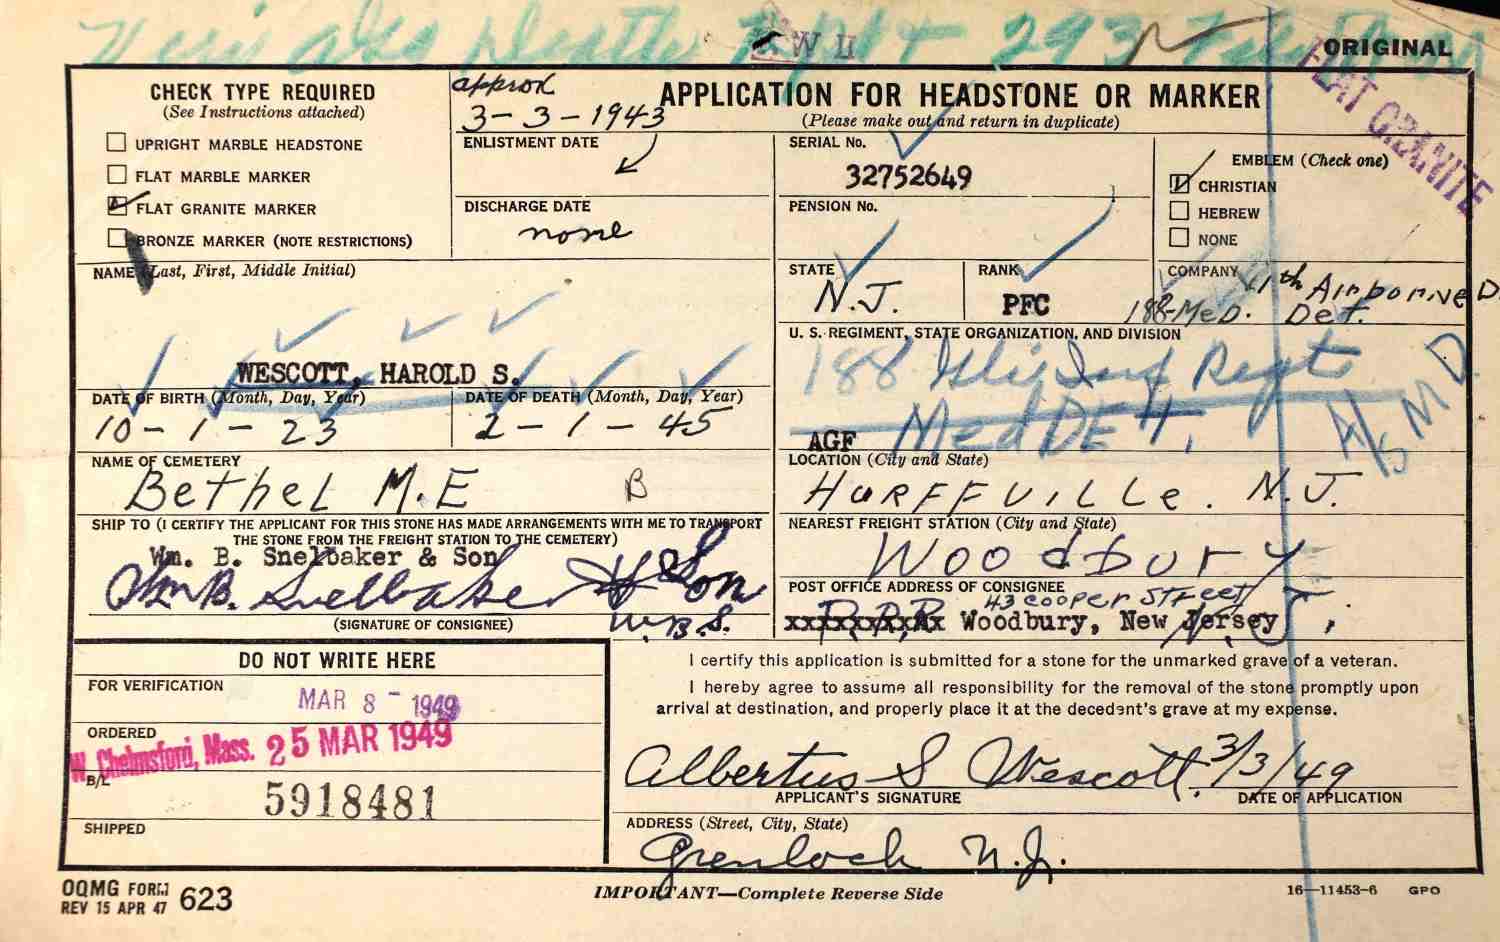 W II
ORIGINAL
FLAT GRANITE
CHECK TYPE REQUIRED
(See Instructions attached)
UPRIGHT MARBLE HEADSTONE
FLAT MARBLE MARKER
FLAT GRANITE MARKER
BRONZE MARKER (NOTE RESTRICTIONS)
approx
3-3-1943
ENLISTMENT DATE
DISCHARGE DATE
none
APPLICATION FOR HEADSTONE OR MARKER
(Please make out and return in duplicate)
SERIAL No.
32752649
PENSION No.
EMBLEM (Check one)
CHRISTIAN
HEBREW
NONE
NAME (Last, First, Middle Initial)
WESCOTT, HAROLD S.
STATE
N.J.
RANK
PFC
COMPANY
11th Airborne D.
188-MeD. Det.
U. S. REGIMENT, STATE ORGANIZATION, AND DIVISION
188 Gli Inf Regt
Med DET.
AGF
DATE OF BIRTH (Month, Day, Year)
10-1-23
DATE OF DEATH (Month, Day, Year)
2-1-45
NAME OF CEMETERY
Bethel M.E B
LOCATION (City and State)
HURFFVILLe. N.J.
SHIP TO (I CERTIFY THE APPLICANT FOR THIS STONE HAS MADE ARRANGEMENTS WITH ME TO TRANSPORT
THE STONE FROM THE FREIGHT STATION TO THE CEMETERY)
Wm. B. Snelbaker & Son
Wm B. Snelbaker & Son
W.B.S.
(SIGNATURE OF CONSIGNEE)
NEAREST FREIGHT STATION (City and State)
Woodbury
POST OFFICE ADDRESS OF CONSIGNEE
43 Cooper STreet
Woodbury, New Jersey
N.J.
DO NOT WRITE HERE
FOR VERIFICATION
MAR 8 - 1949
ORDERED
W. Chelmsford, Mass. 25 MAR 1949
B/L
5918481
SHIPPED
I certify this application is submitted for a stone for the unmarked grave of a veteran.
I hereby agree to assume all responsibility for the removal of the stone promptly upon
arrival at destination, and properly place it at the decedent's grave at my expense.
Albertus S Wescott. 3/3/49
APPLICANT'S SIGNATURE
DATE OF APPLICATION
ADDRESS (Street, City, State)
Grenloch N.J.
OQMG FORM
REV 15 APR 47 623
IMPORTANT—Complete Reverse Side
16—11453-6 GPO